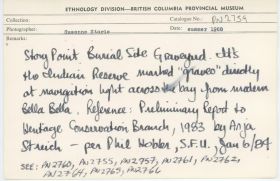 ETHNOLOGY DIVISION—BRITISH COLUMBIA PROVINCIAL MUSEUM
Collection Catalogue No.: PN2759
Photographer: Susanne Storie Date: summer 1968
Remarks:
Story Point. Burial Site Graveyard. It's
No Indian Reserve marked "graves" directly
at navigation light across the bay from modern
Bella Bella. Reference: Preliminary Report to
Heritage Conservation Branch, 1983 by Anja
Streich - per Phil Hobler, S.F.U. Jan 6/84
SEE: PN2760, PN2755, PN2757, PN2761, PN2762,
PN2764, PN2765, PN2766